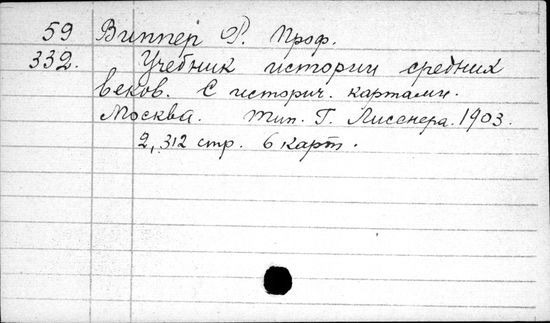 59 Виппер Р. Проф.
332. Учебник истории средних
веков. С историч. картами.
Москва. Тип. Г. Лисснера. 1903.
2, 312 стр. 6 карт.